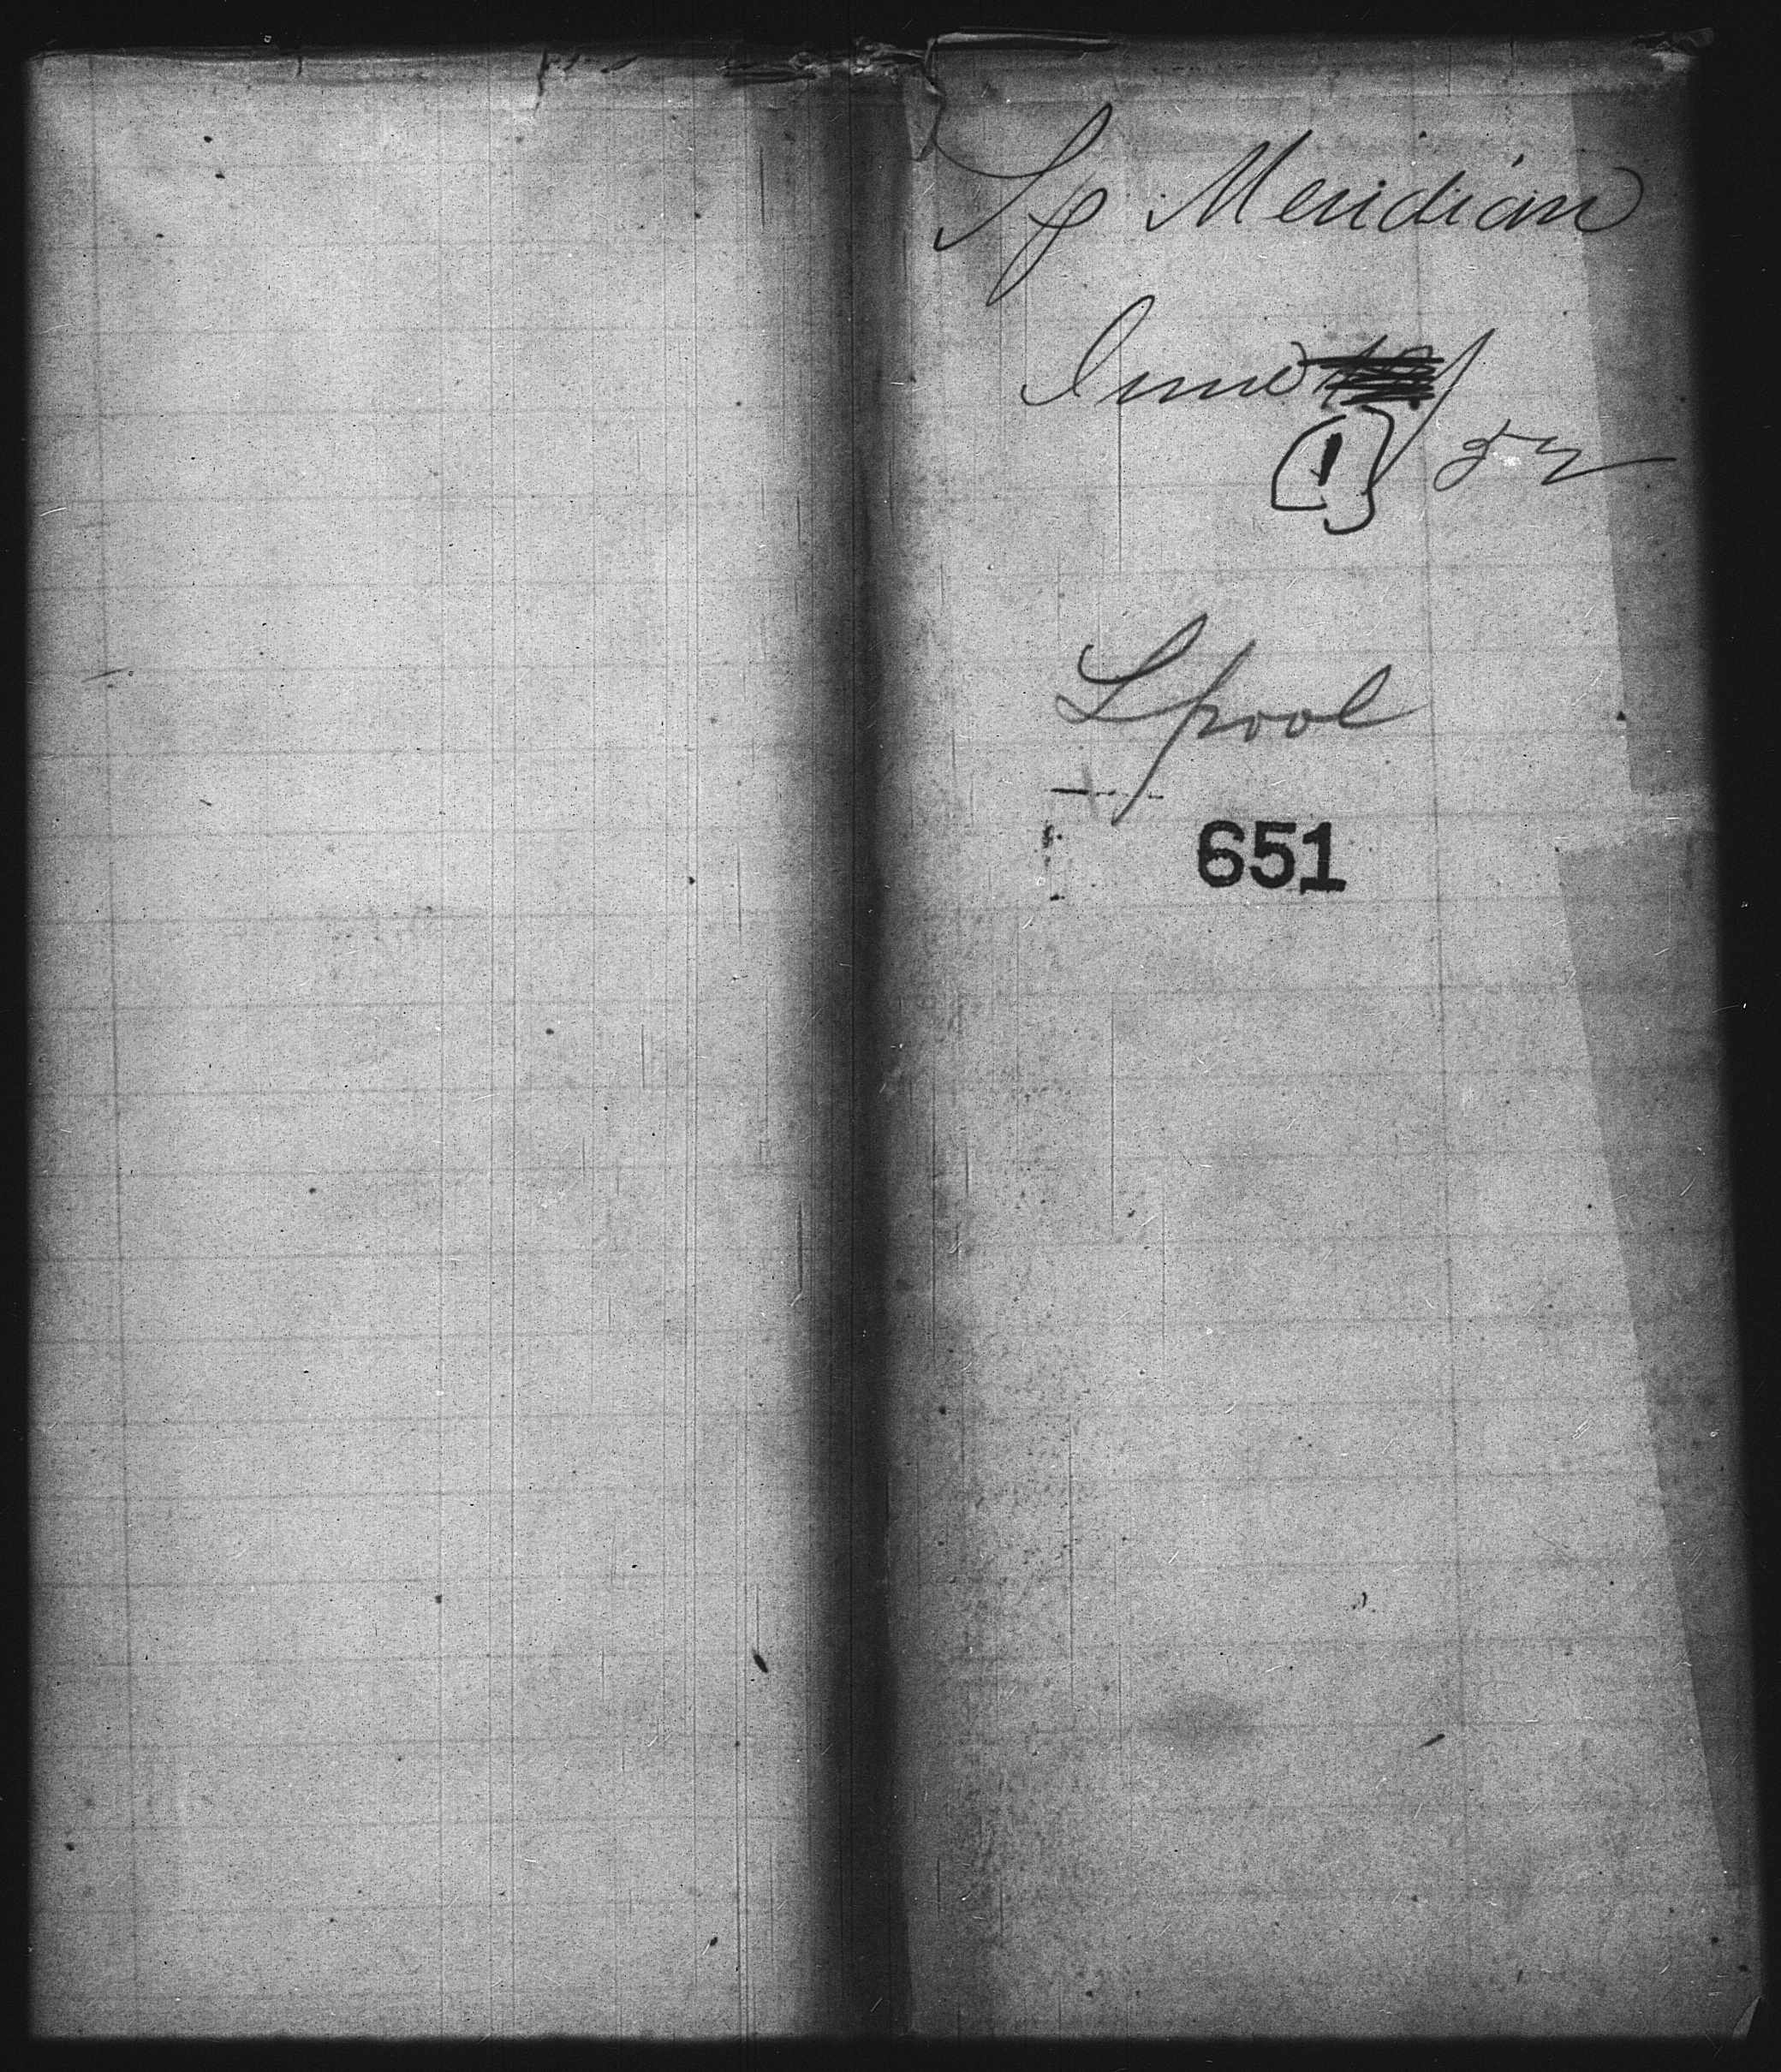 Sp Meridian
June
1 / 52
Lpool
651